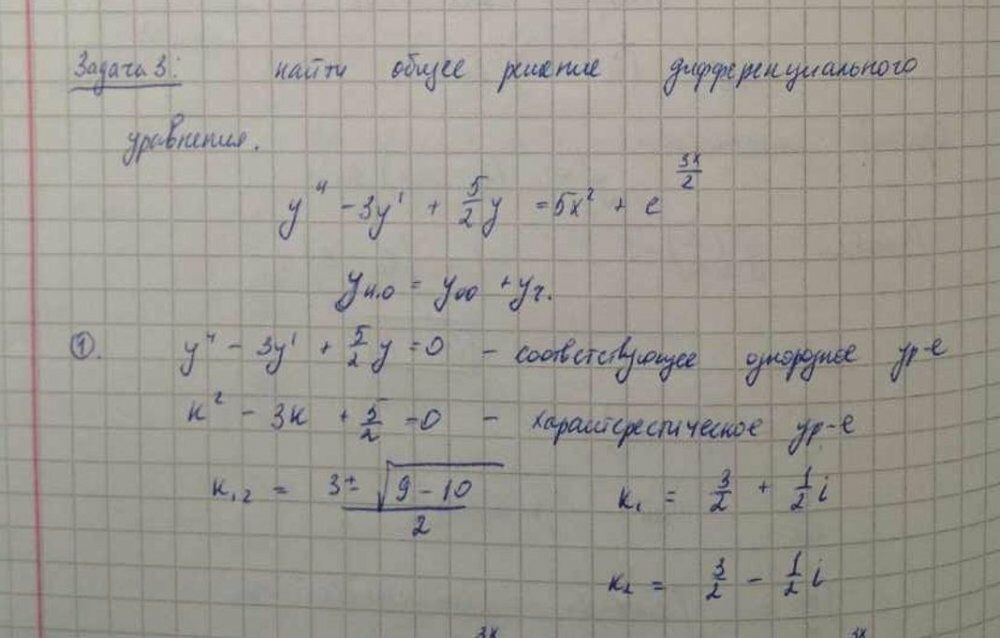 Задача 3: найти общее решение дифференциального
уравнения.
y'' - 3y' + 5/2 y = 5x² + e^(3x/2)
yн.о = yоо + yч.
①. y'' - 3y' + 5/2 y = 0 - соответствующее однородное ур-е
к² - 3к + 5/2 = 0 - характерестическое ур-е
к₁,₂ = (3 ± √(9 - 10))/2 к₁ = 3/2 + 1/2 i
к₂ = 3/2 - 1/2 i